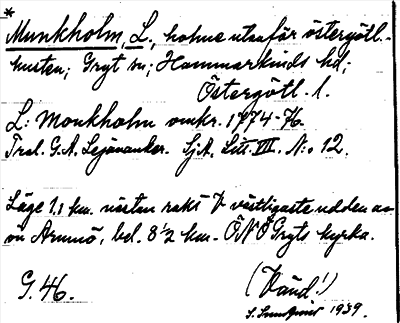 *
Munkholm, L., holme utanför östergötl.-
kusten; Gryt sn; Hammarkinds hd;
Östergötl. l.
L: Monkholm omkr. 1774-76.
Tral. G.A. Lejonanker. Sj.A. Litt. VIII. N:o 12.
Läge 1.1 km. nästan rakt V västligaste udden av
ön Armnö, bel. 8 1/2 km. ÖNÖ Gryts kyrka.
G. 46.
(Vänd!)
S. 1939.